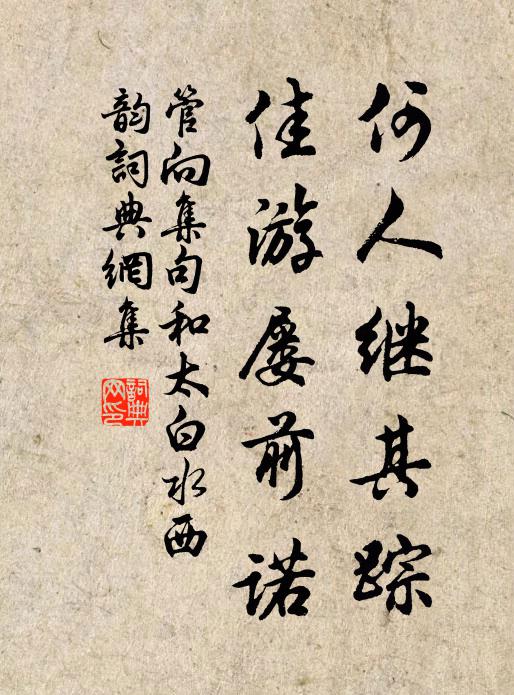 何人继其踪
佳游屡前诺
管向集句和太白水西
韵詞典網集
詞典
网印